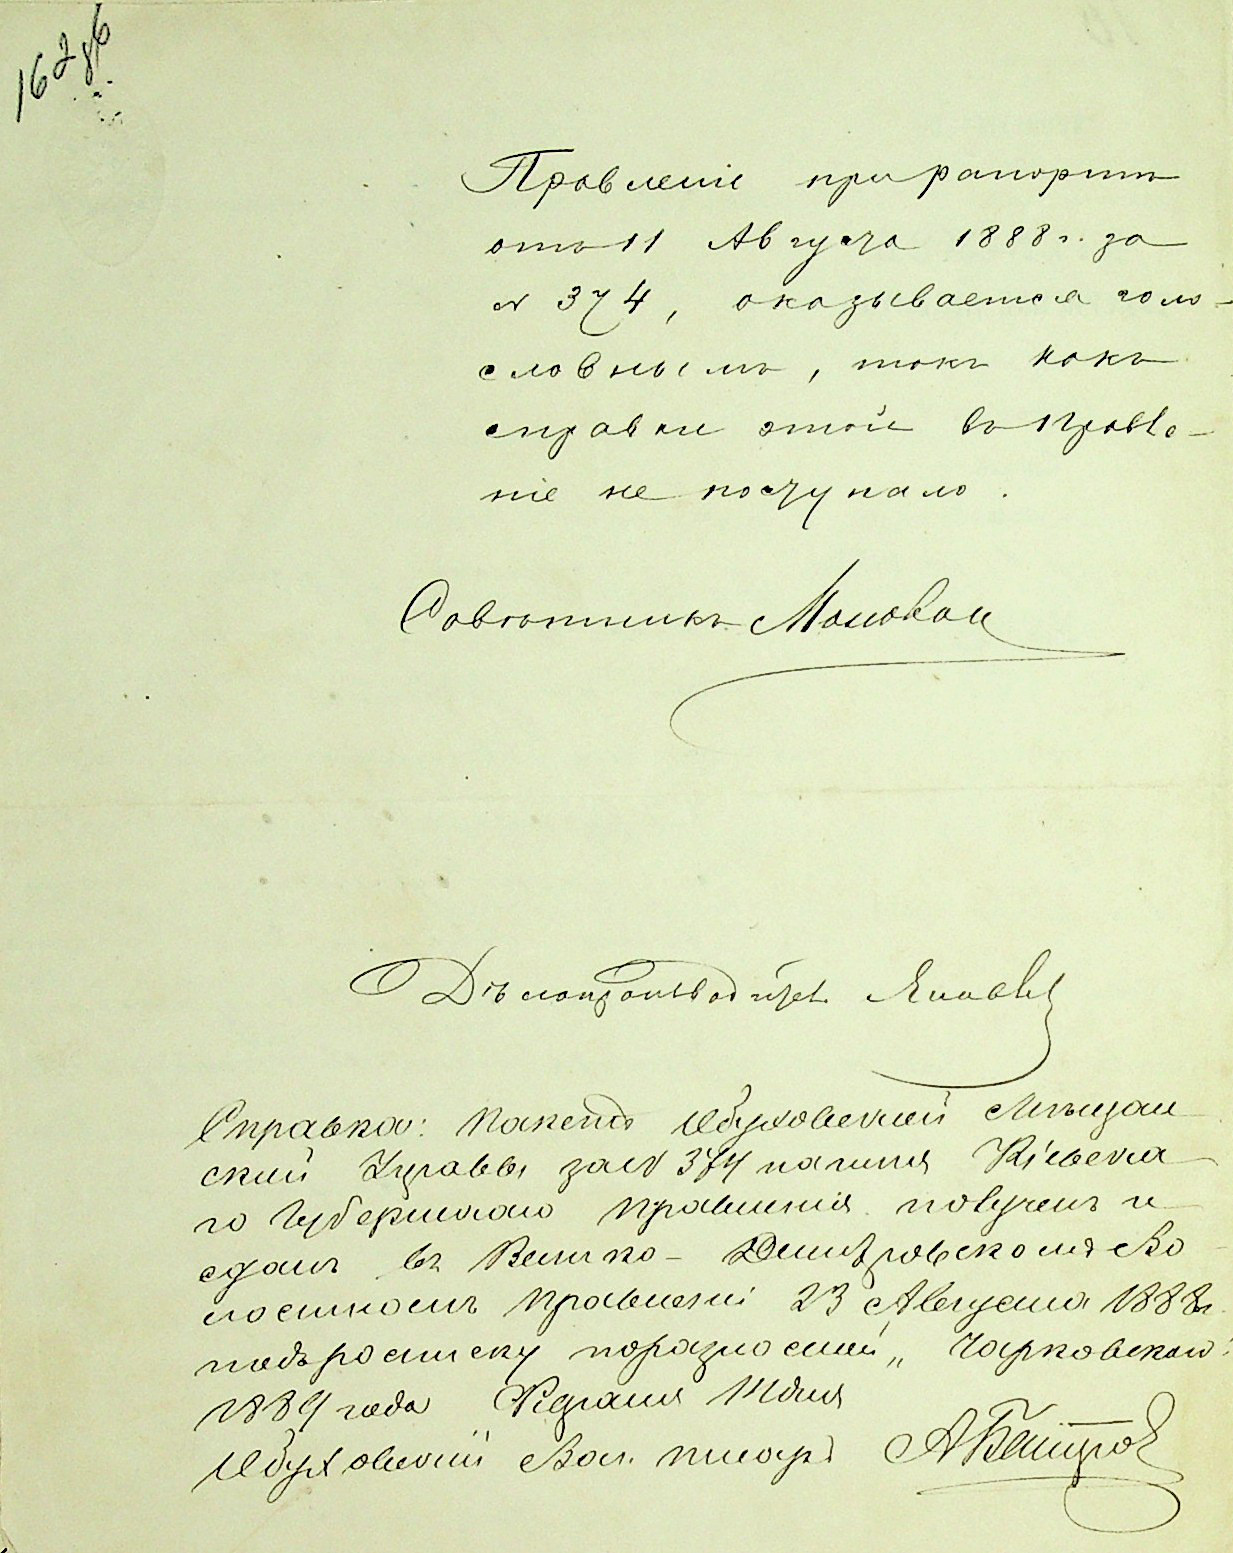 16286
Правленіе при рапортѣ
отъ 11 Августа 1888 г. за
№ 374, оказывается голо-
словнымъ, такъ какъ
справки этой въ Правле-
ніе не поступало.
Совѣтникъ
Дѣлопроизводитель
Справка: Пакетъ Обуховской Мѣщан
ской Управы за № 374 на имя Кіевска
го Губернскаго Правленія получен и
сданъ въ Велико-Дмитровскомъ Во
лостномъ Правленіи 23 Августа 1888 г.
подъ росписку по разносной „Чарковскаго
1889 года Іюня
Обуховскій Вол. писарь